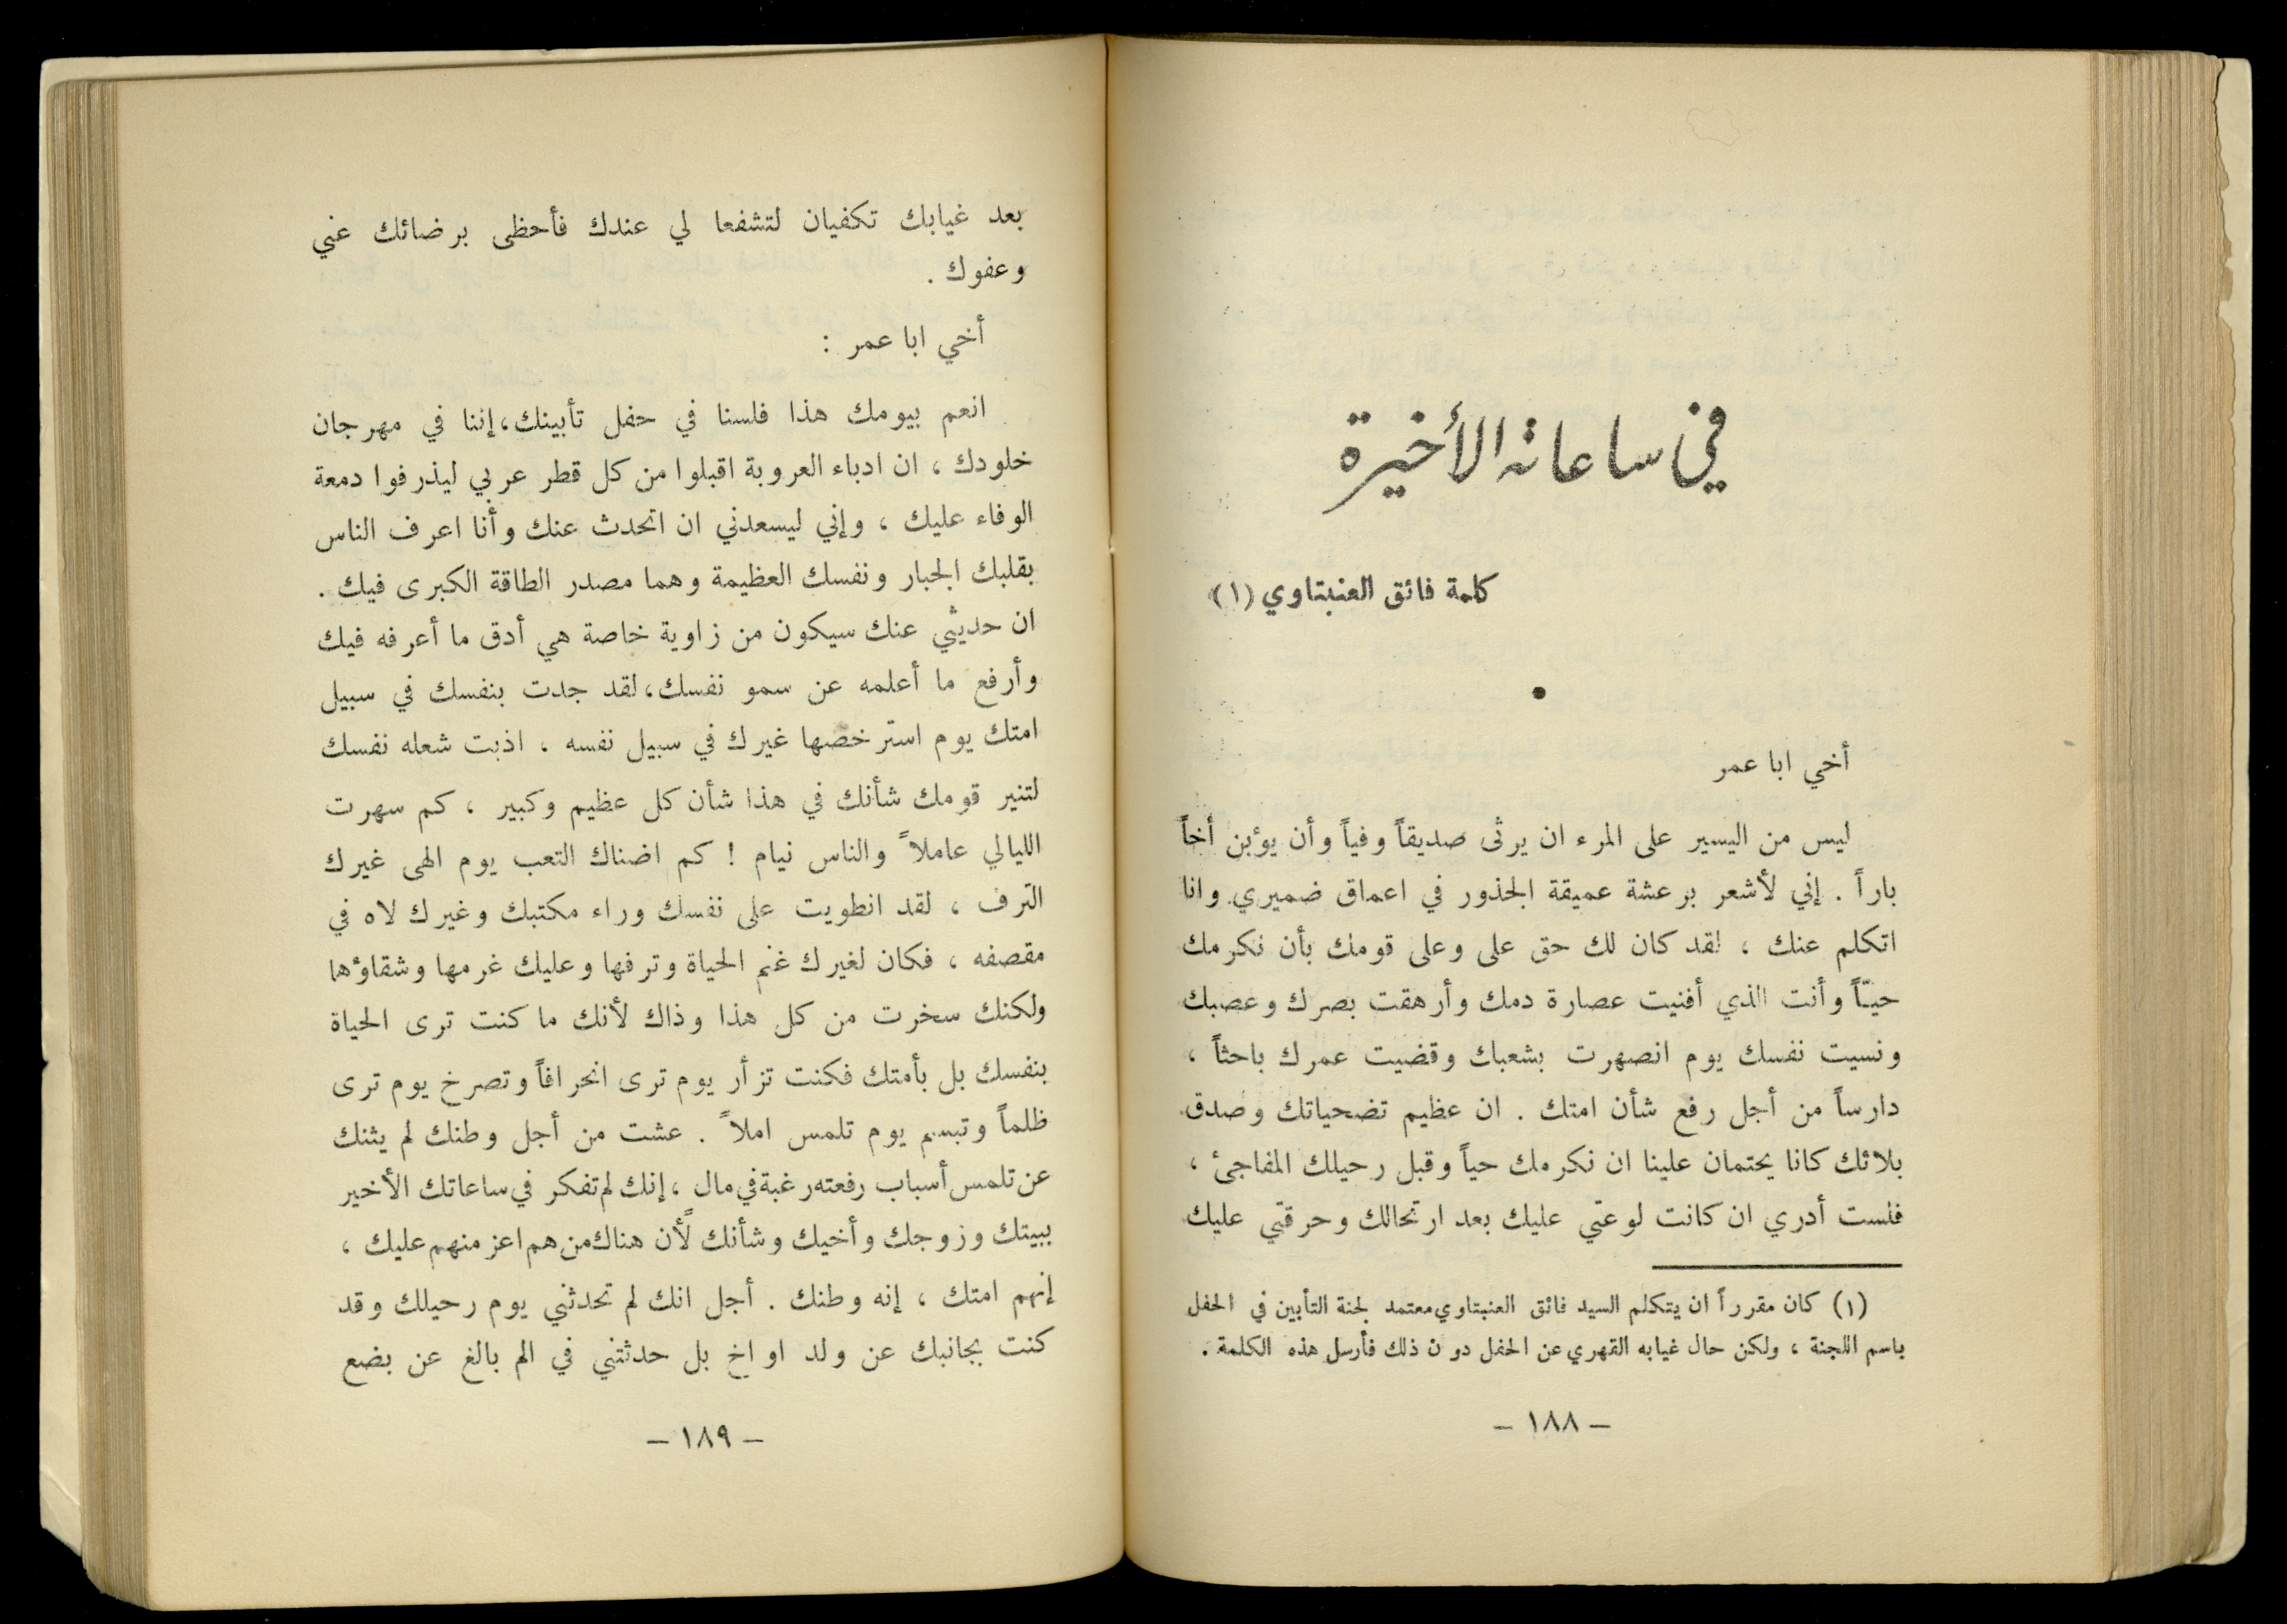 في ساعاته الأخيرة
كلمة فائق العنبتاوي (١)
أخي ابا عمر
ليس من اليسير على المرء ان يرثى صديقاً وفياً وأن يؤبن أخاً
باراً . إني لأشعر برعشة عميقة الجذور في اعماق ضميري وانا
اتكلم عنك ، لقد كان لك حق على وعلى قومك بأن نكرمك
حيّاً وأنت الذي أفنيت عصارة دمك وأرهقت بصرك وعصبك
ونسيت نفسك يوم انصهرت بشعبك وقضيت عمرك باحثاً ،
دارساً من أجل رفع شأن امتك . ان عظيم تضحياتك وصدق
بلائك كانا يحتمان علينا ان نكرمك حياً وقبل رحيلك المفاجئ ،
فلست أدري ان كانت لوعتي عليك بعد ارتحالك وحرقتي عليك
(١) كان مقرراً ان يتكلم السيد فائق العنبتاوي معتمد لجنة التأبين في الحفل
باسم اللجنة ، ولكن حال غيابه القهري عن الحفل دون ذلك فأرسل هذه الكلمة .
— ١٨٨ —
بعد غيابك تكفيان لتشفعا لي عندك فأحظى برضائك عني
وعفوك .
أخي ابا عمر :
انعم بيومك هذا فلسنا في حفل تأبينك، إننا في مهرجان
خلودك ، ان ادباء العروبة اقبلوا من كل قطر عربي ليذرفوا دمعة
الوفاء عليك ، وإني ليسعدني ان اتحدث عنك وأنا اعرف الناس
بقلبك الجبار ونفسك العظيمة وهما مصدر الطاقة الكبرى فيك .
ان حديثي عنك سيكون من زاوية خاصة هي أدق ما أعرفه فيك
وأرفع ما أعلمه عن سمو نفسك، لقد جدت بنفسك في سبيل
امتك يوم استرخصها غيرك في سبيل نفسه . اذبت شعله نفسك
لتنير قومك شأنك في هذا شأن كل عظيم وكبير ، كم سهرت
الليالي عاملاً والناس نيام ! كم اضناك التعب يوم الهى غيرك
الترف ، لقد انطويت على نفسك وراء مكتبك وغيرك لاه في
مقصفه ، فكان لغيرك غنم الحياة وترفها وعليك غرمها وشقاؤها
ولكنك سخرت من كل هذا وذاك لأنك ما كنت ترى الحياة
بنفسك بل بأمتك فكنت تزأر يوم ترى انحرافاً وتصرخ يوم ترى
ظلماً وتبسم يوم تلمس املاً . عشت من أجل وطنك لم يثنك
عن تلمس أسباب رفعته رغبة في مال ، إنك لم تفكر في ساعاتك الأخير
ببيتك وزوجك وأخيك وشأنك لأن هناك من هم اعز منهم عليك ،
إنهم امتك ، إنه وطنك . أجل انك لم تحدثني يوم رحيلك وقد
كنت بجانبك عن ولد او اخ بل حدثتني في الم بالغ عن بضع
— ١٨٩ —